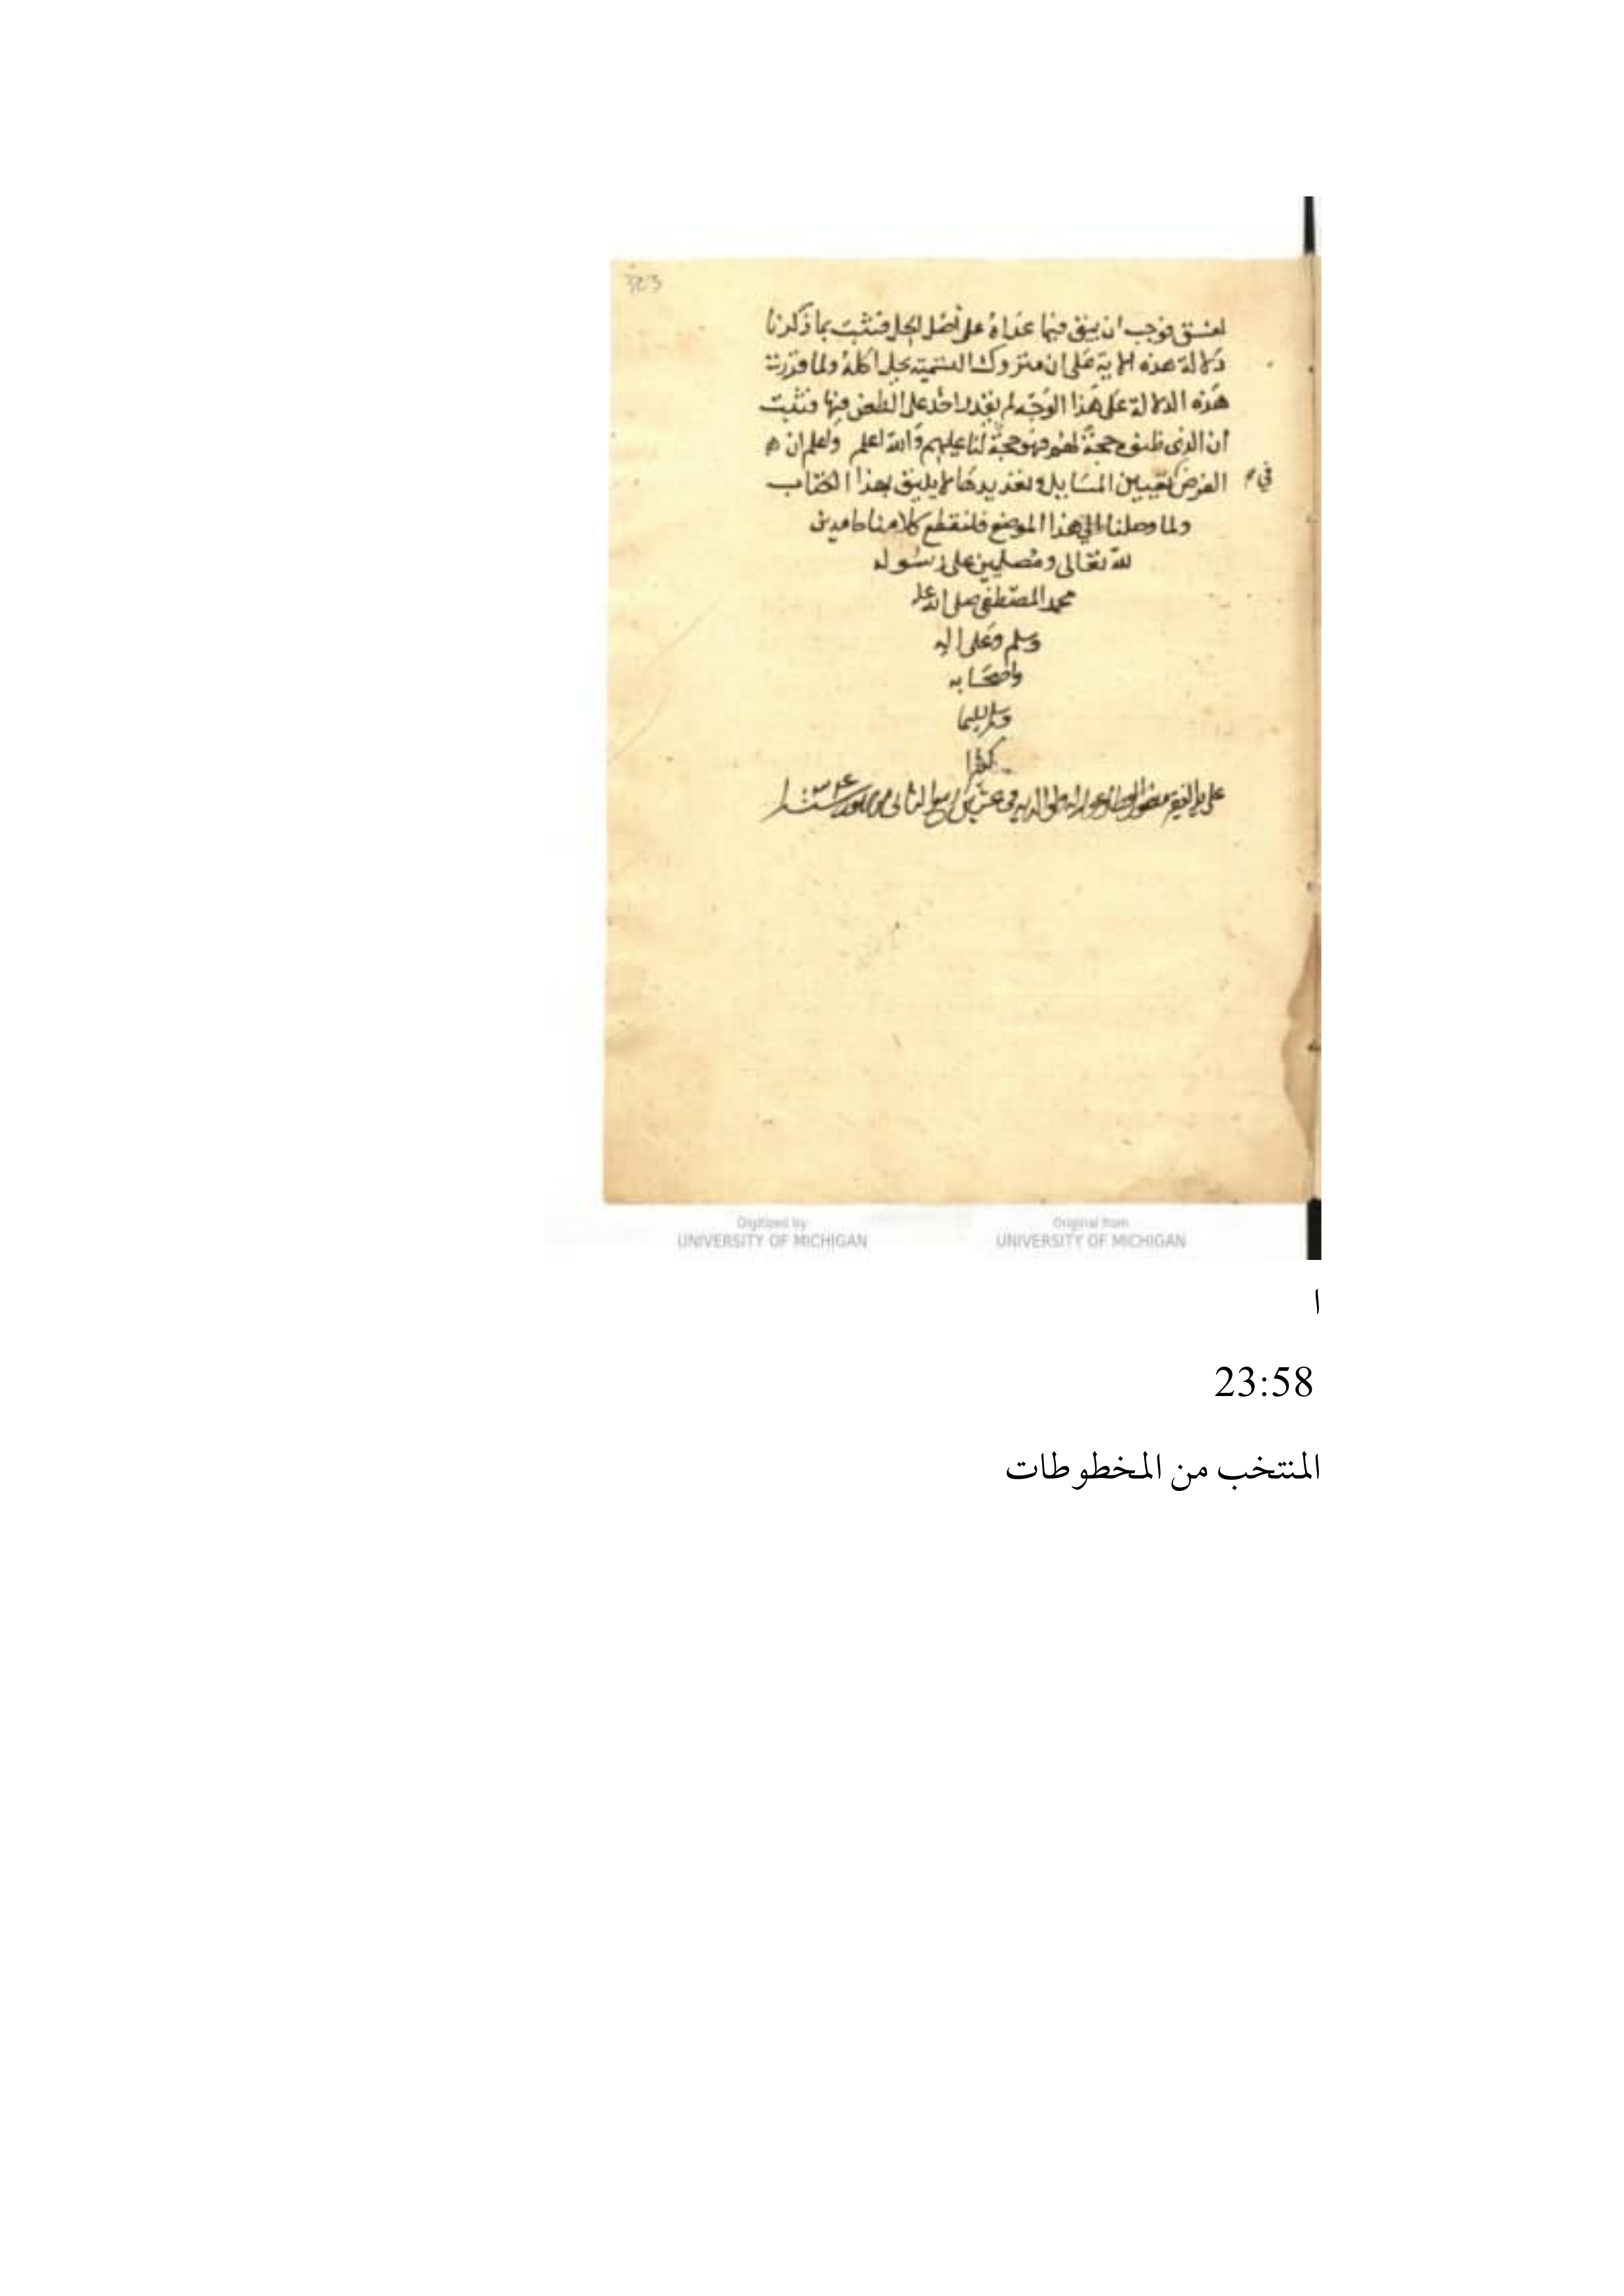 303
لفسق فوجب ان يبقى فيما عداه على اصل الحل فثبت بما ذكرنا
دلالة هذه الاية على ان متروك التسمية يحل اكله ولما قررت
هذه الدلالة على هذا الوجه لم يقدر احد على الطعن فيها فثبت
ان الذى ظنوه حجة لهم فهو حجة لنا عليهم والله اعلم واعلم ان
في
الغرض تعيين المسايل و لا يليق بهذا الكتاب
ولما وصلنا الي هذا الموضع فلنقطع كلامنا حامدين
لله تعالى ومصليين على رسوله
محمد المصطفى صلى الله عليه
وسلم وعلى اله
واصحابه
وسلم تسليما
كثيرا
على يد الفقير
Digitized by
UNIVERSITY OF MICHIGAN
Original from
UNIVERSITY OF MICHIGAN
ا
23:58
المنتخب من المخطوطات